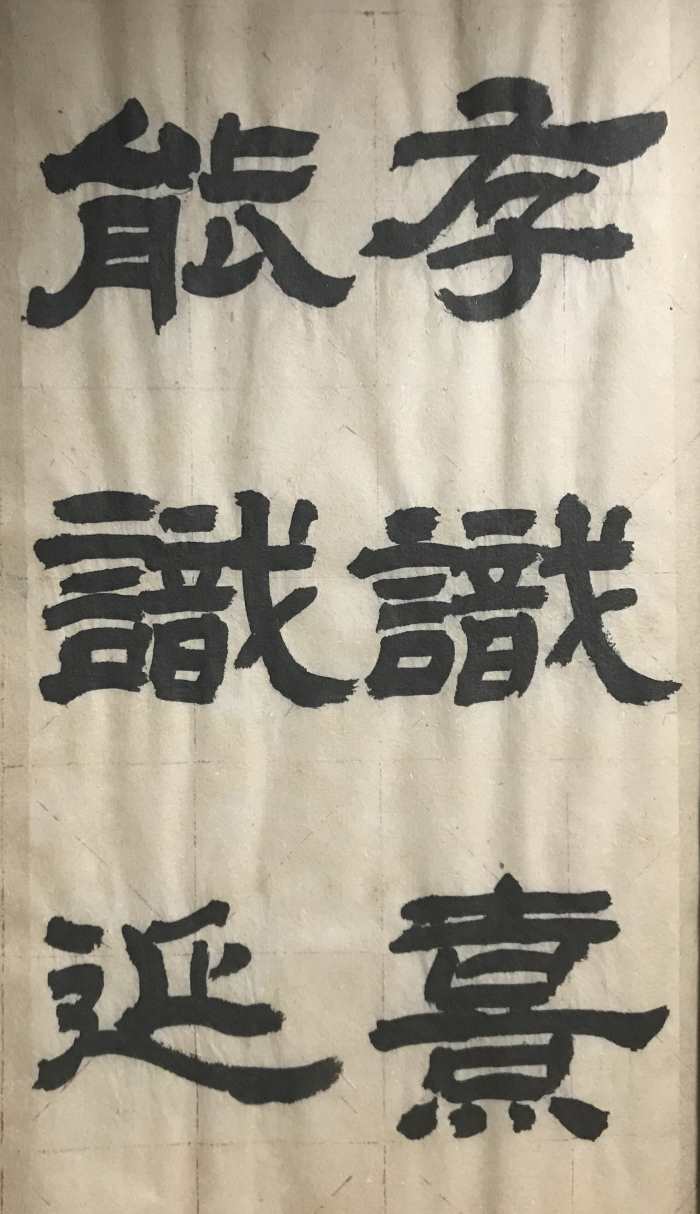 存識熹
能識延